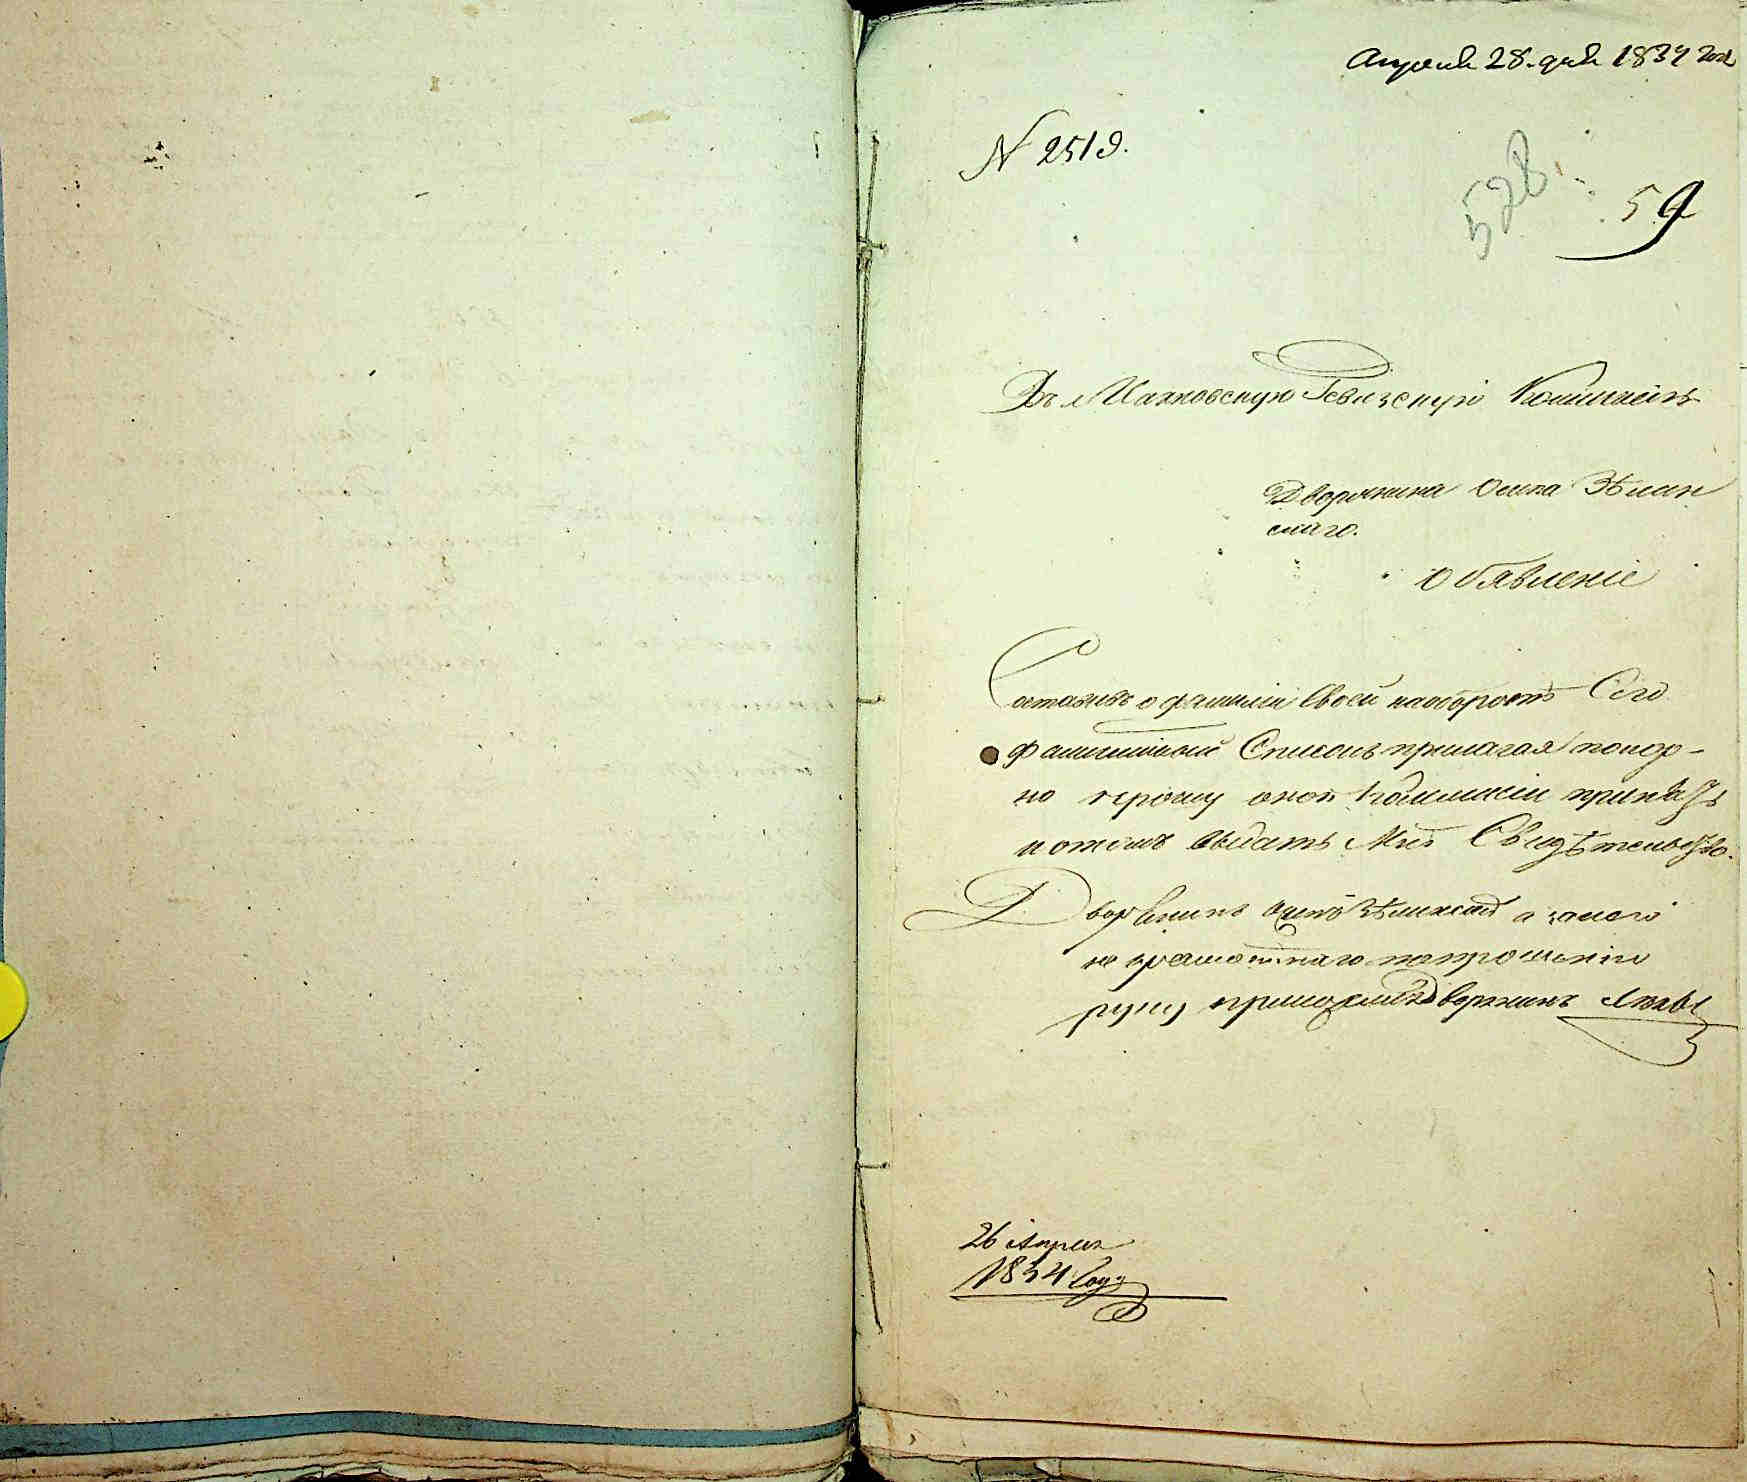 Апреля 28. дня 1834 года
N 2519.
528.
59
Въ Махновскую Ревизскую Комисію
Дворянина Осипа Зѣлин
скаго.
Обявленіе
Составивъ о фамиліи Своей наоборотѣ Сего
фамилійный Списокъ прилагая покор-
но прошу оной Коммисіи принять
и отомъ выдать Мнѣ Свидѣтельство.
Дворянинъ Осипъ Зѣлинскій а занего
неграмотнаго попрошенію
руку приложилъ Дворянинъ
26 Апреля
1834 Году